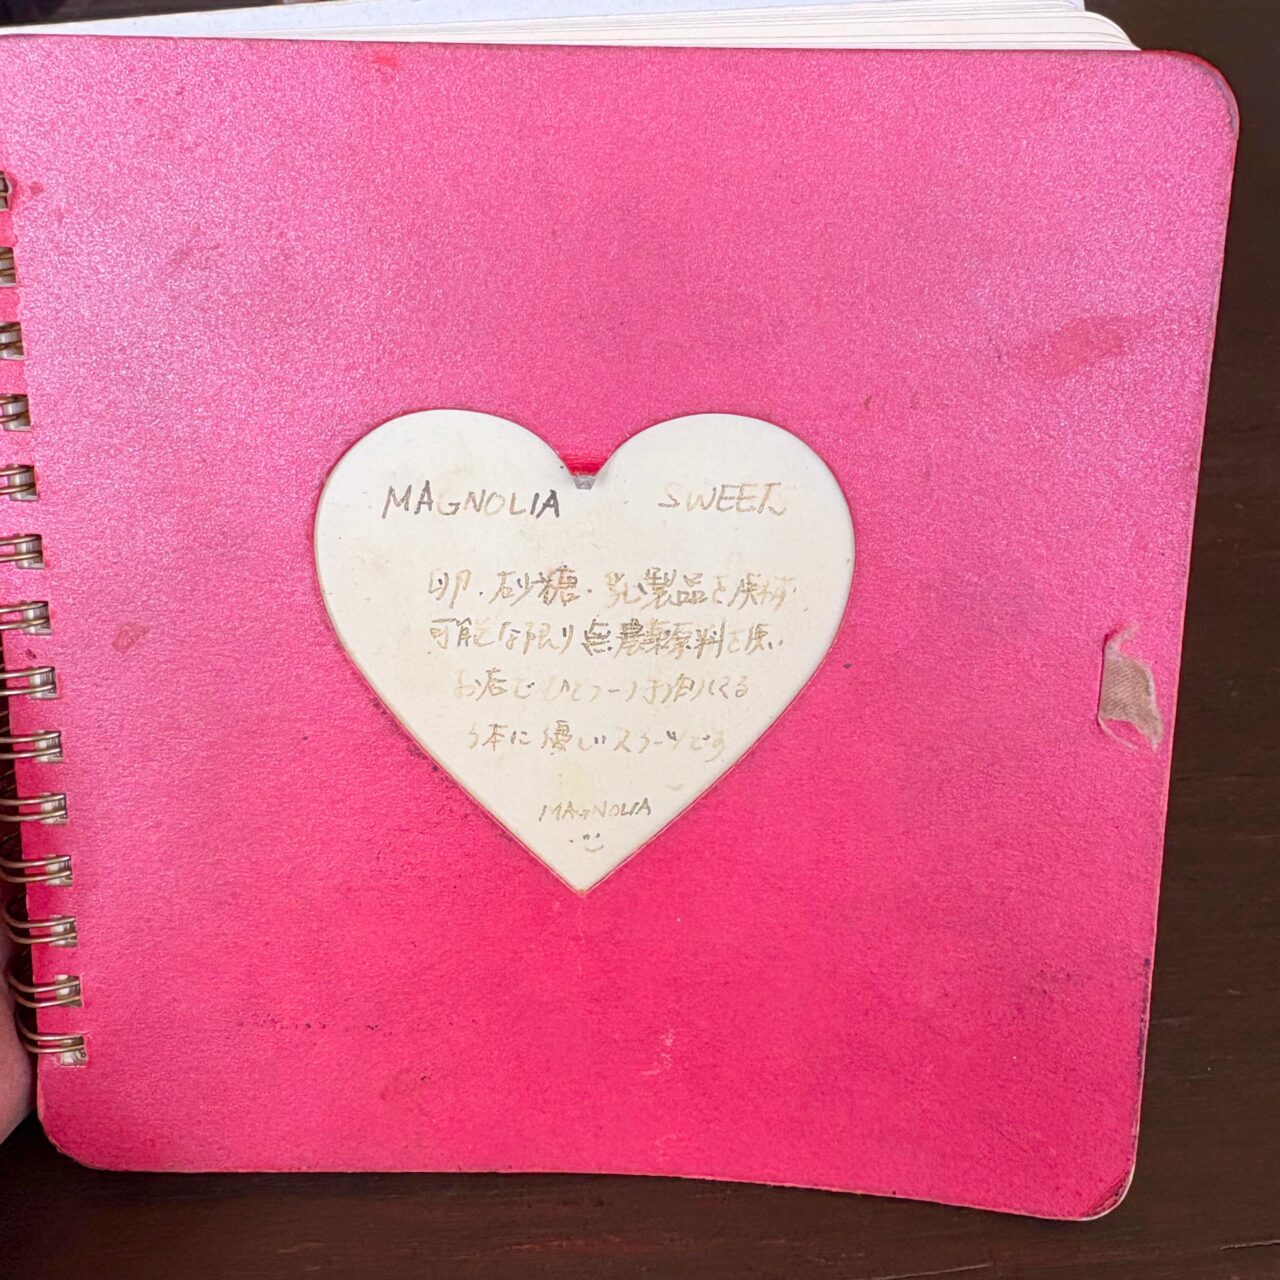 MAGNOLIA SWEETS
卵・砂糖・乳製品を使わず
可能な限り無農薬原料を使い
お店でひとつ一つ手作りしてる
体に優しいスイーツです
MAGNOLIA